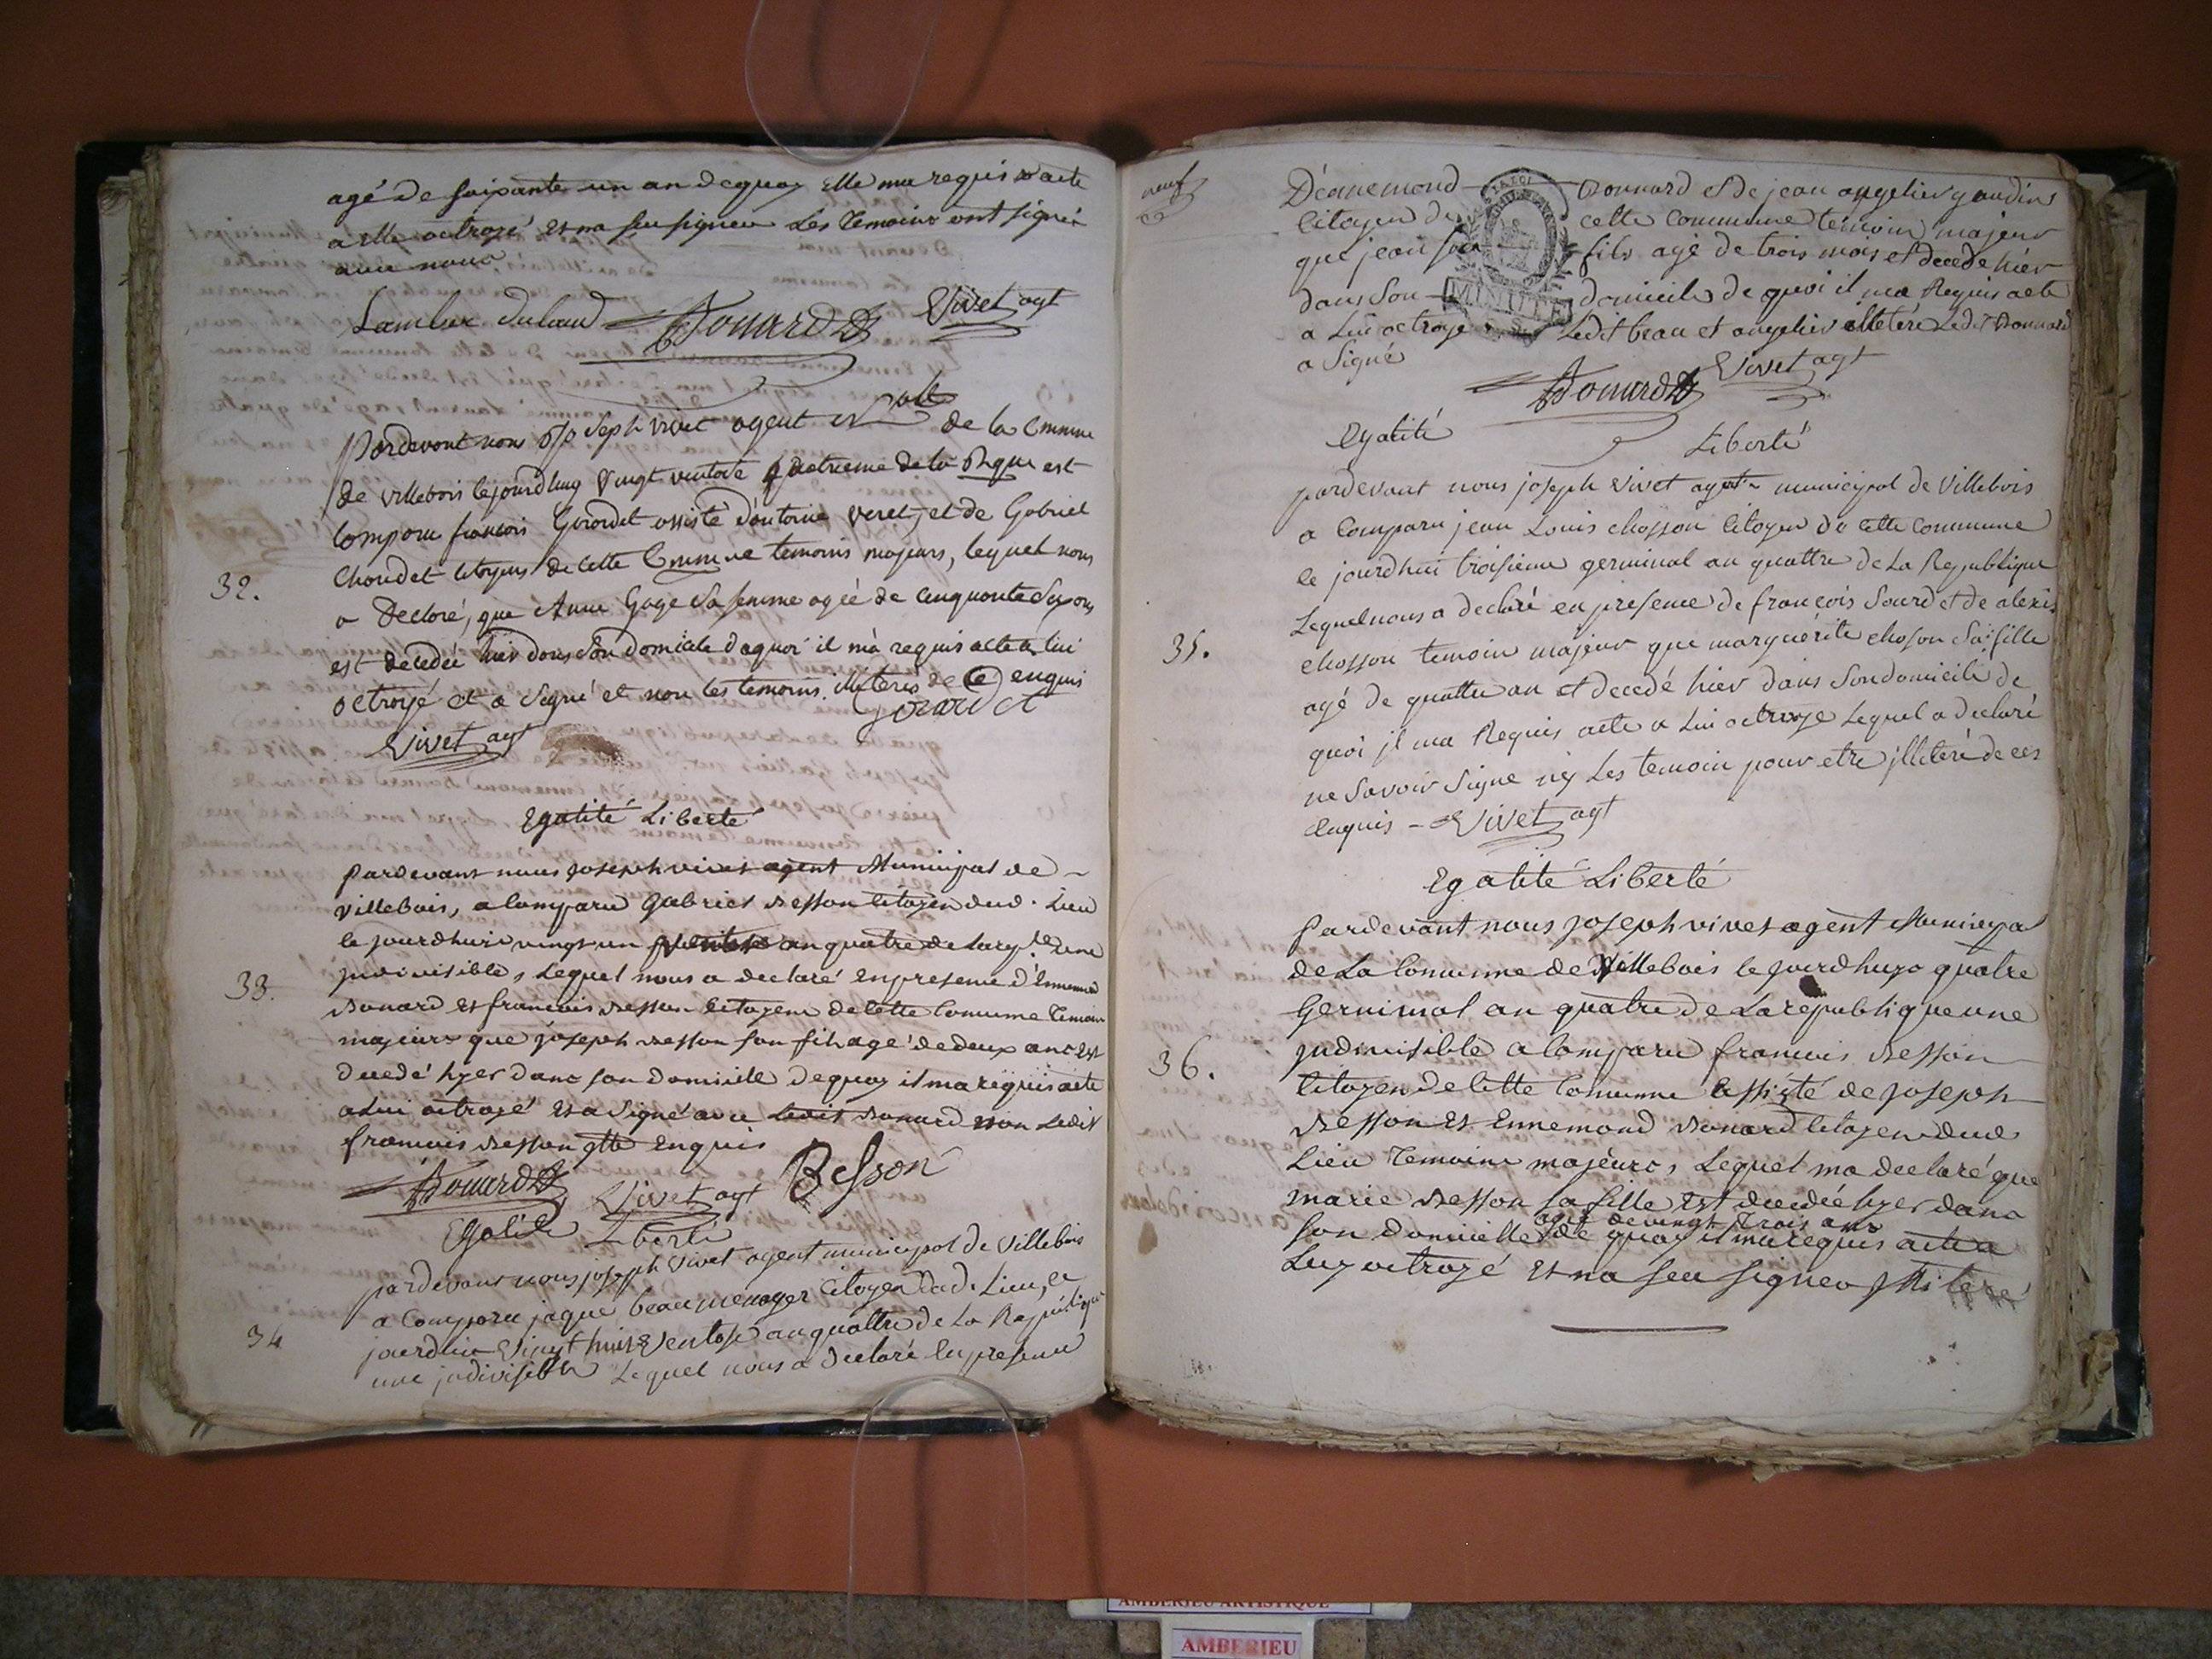 agé de soixante un an dequoy Elle ma requis acte
a elle octroyé et na seu signer Les Temoins ont signés
avec nous
Bonard Vivet agt
Pardevant nous joseph vivet agent de la Commune
de villebois lejourdhuy vingt ventose quatrieme de la Rque est
comparu francois Girardet assisté dantoine veret et de Gabriel
Choudet citoyens de cette Commune temoins majeurs, lequel nous
32.
a Declaré, que Anne Gage sa femme agée de cinquante six ans
est decedée hier dans son domicile dequoi il m'a requis acte a lui
octroyé et a Signé et non les temoins illiterés de ce enquis
Girardet
Vivet agt
Egalité Liberté
pardevant nous joseph vivet agent Municipal de
villebois, a comparu Gabriel Besson citoyen dud. Lieu
le jourdhuii vingt un ventose an quatre de la rep.que une
indivisible, Lequel nous a declaré en presence d'Ennemond
33.
Bonard et francois Besson citoyens de cette Commune Temoin
majeurs que joseph Besson son fils agé de deux ans est
decedé hyer dans son domicille dequoy il ma requis acte
a Lui octroyé et a signé avec Ledit Bonard non Ledit
francois Besson enquis
Bonard Vivet agt Besson
Egalité Liberté
pardevant nous joseph Vivet agent municipal de Villebois
a Comparu jaque beau menager Citoyen dud. Lieu, le
34
jourdhui Vingt huit ventose an quattre de La Republique
une jndivisible Lequel nous a declaré en presence
neuf
D'ennemond Bonnard et de jean angelier gaudins
Citoyen de cette Commune témoin majeur
que jean son fils agé de trois mois et decedé hier
dans son domicile de quoi il ma Requis acte
MINUTE
a Lui octroyé Ledit beau et angelier illetéré Ledit Bonnard
a Signé
Bonard Vivet agt
Egalité Liberté
pardevant nous joseph Vivet agent municipal de Villebois
a Comparu jean Louis chosson Citoyen de cette Commune
le jourdhui troisieme germinal an quattre de La Republique
Lequel nous a declaré en presence de françois Sourd et de alexis
35.
chosson temoin majeur que marguérite choson Sa fille
agé de quattre an et decedé hier dans Son domicile de
quoi jl ma Requis acte a Lui octroyé Lequel a declaré
ne Savoir Signe ny Les temoin pour etre jlliteré de ces
Enquis Vivet agt
Egalité Liberté
Pardevant nous joseph vivet agent Municipa
de La Commune de Villebois le jourdhuyo quatre
Germinal an quatre de La republique une
jndivisible a Comparu francois Besson
36.
Citoyen de Cette Commune assisté de joseph
Besson et Ennemond Bonard Citoyen dud
Lieu Temoins majeurs, Lequel ma declaré que
marie Besson sa fille est decedée hyer dans
agée de vingt trois ans
son domicille de quoy il ma requis acte a
Luy octroyé et na seu signer jlliteré
AMBERIEU ARTISTIQUE
AMBERIEU